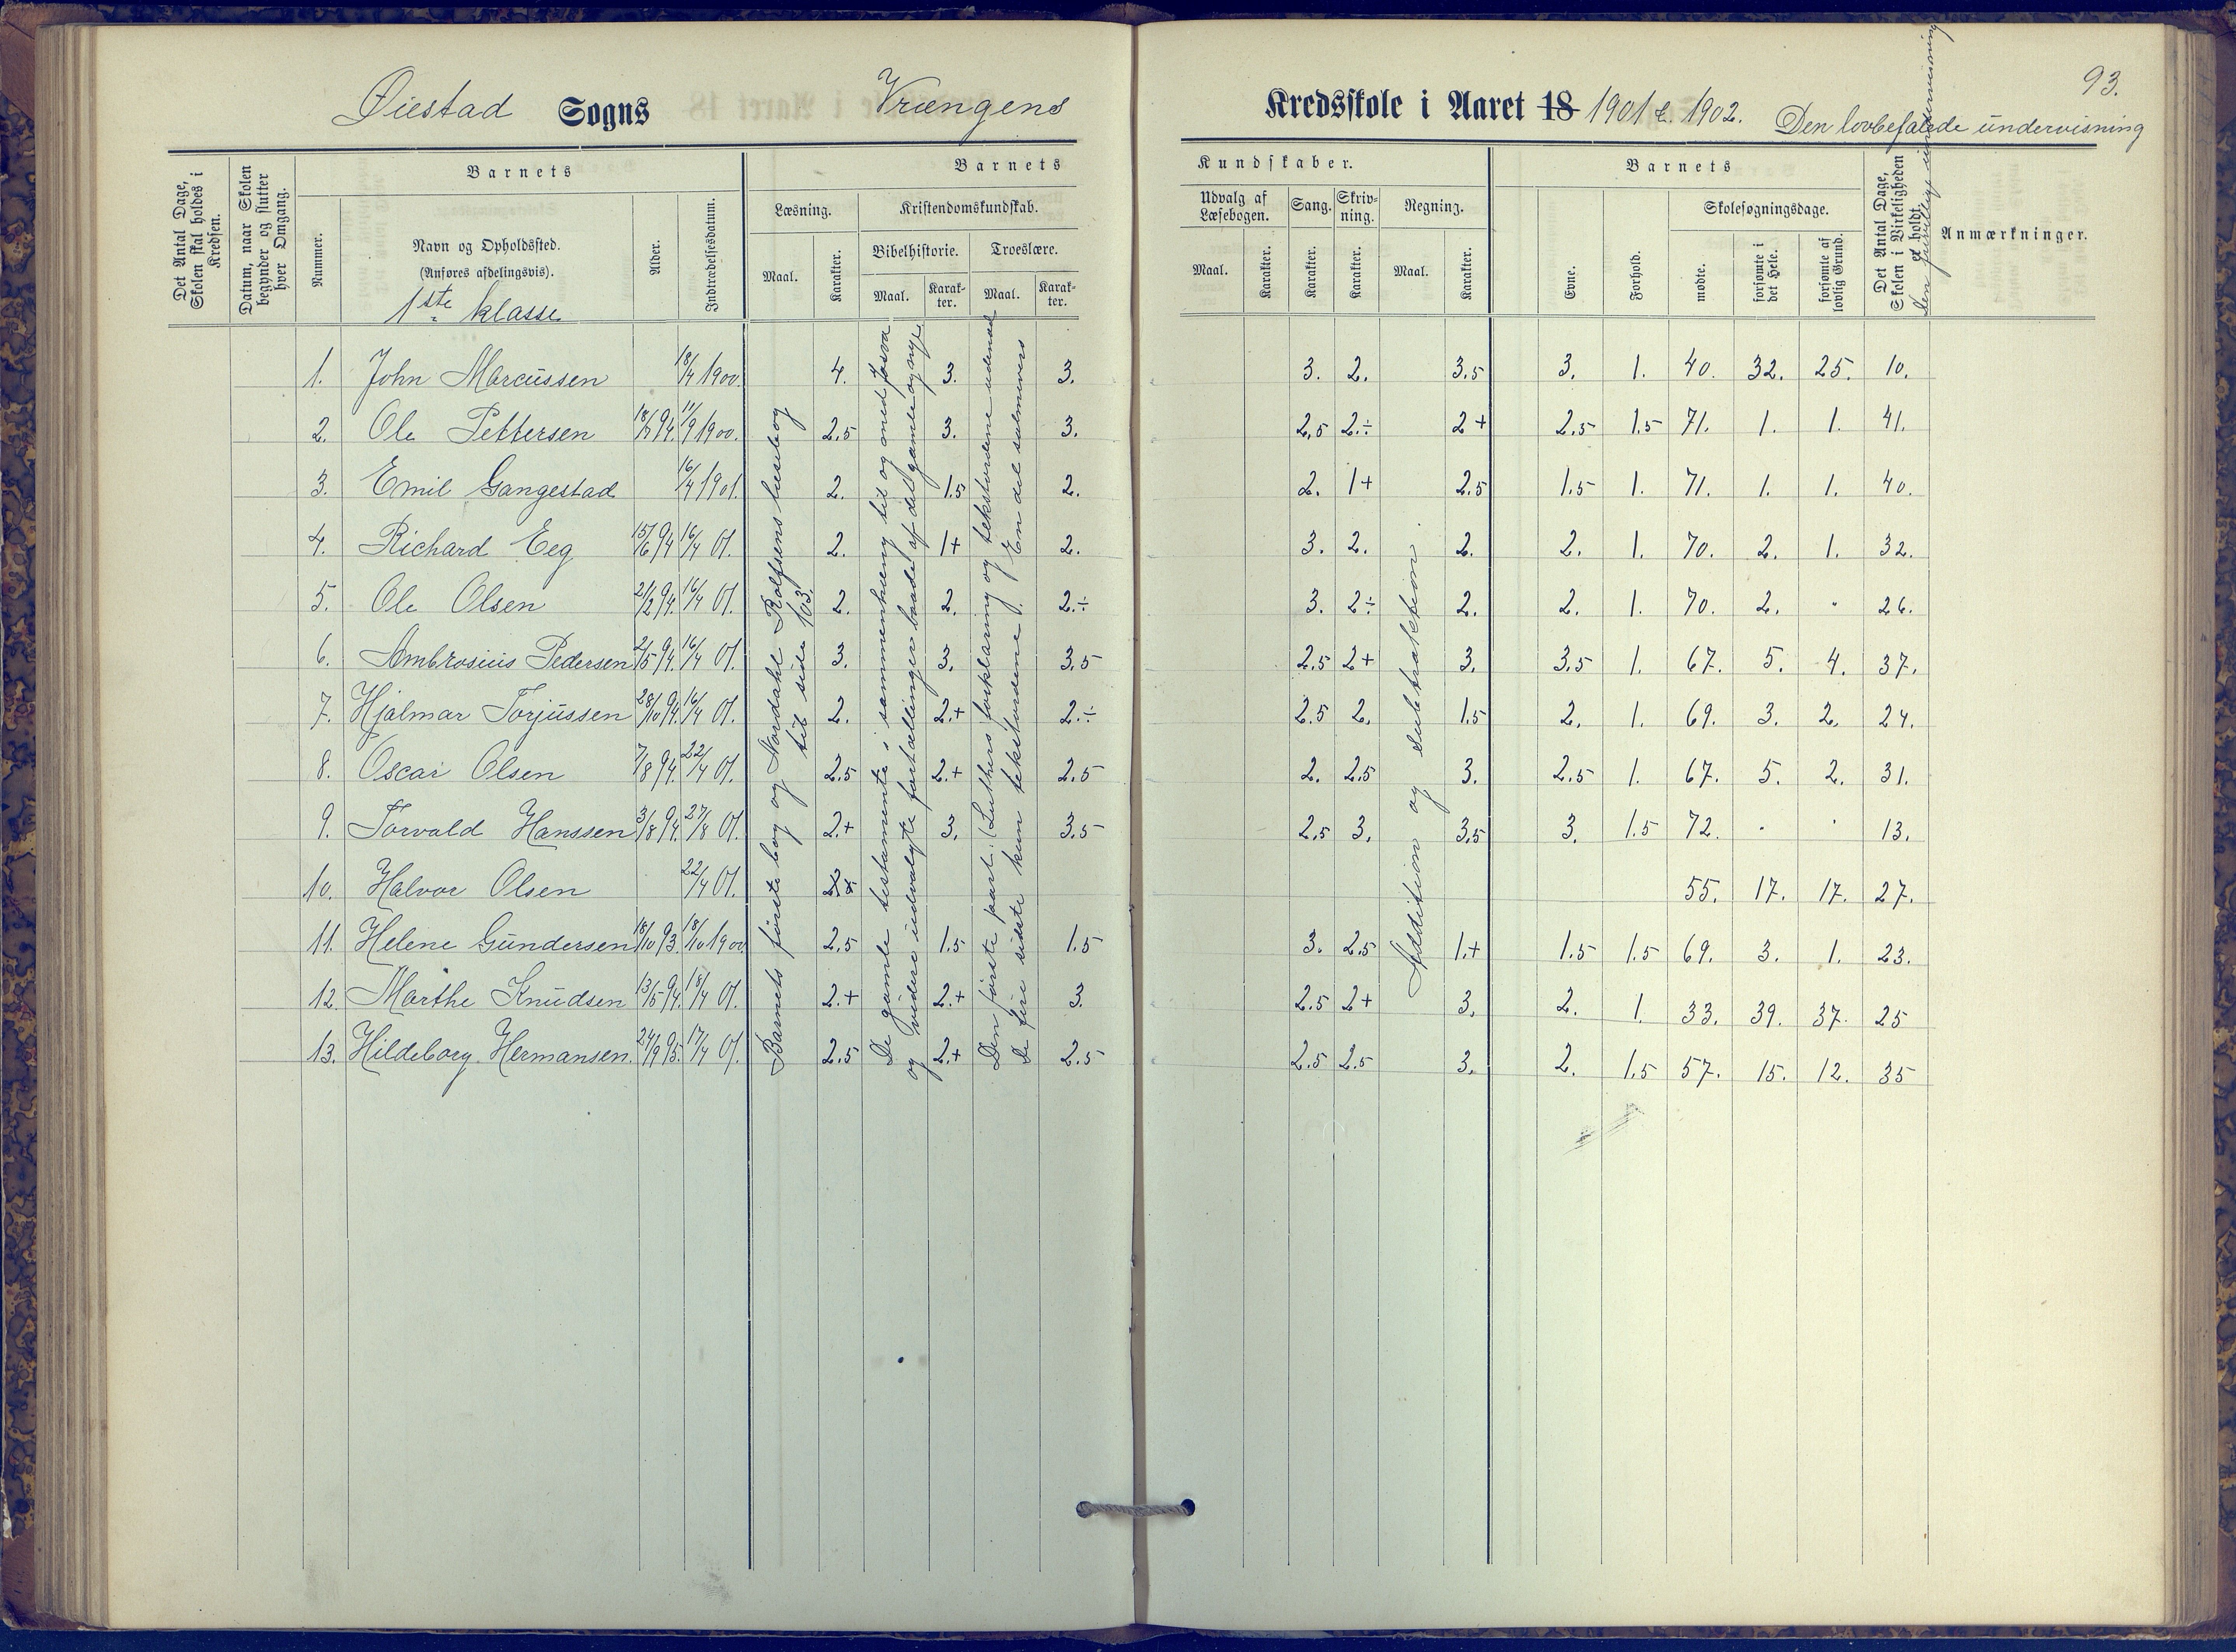 93.
Øiestad Sogns Vrængens Kredsskole i Aaret 18 1901 & 1902. Den lovbefalede undervisning
Det Antal Dage, Skolen skal holdes i Kredsen.
Datum, naar Skolen begynder og slutter hver Omgang.
Barnets
Nummer.
Navn og Opholdssted.
(Anføres afdelingsvis).
1ste klasse
Alder.
Indtrædelsesdatum.
Barnets
Læsning.
Maal.
Karakter.
Kristendomskundskab.
Bibelhistorie.
Maal.
Karakter.
Troeslære.
Maal.
Karakter.
Kundskaber.
Udvalg af Læsebogen.
Maal.
Karakter.
Sang.
Karakter.
Skrivning.
Karakter.
Regning.
Maal.
Karakter.
Barnets
Evne.
Forhold.
Skolesøgningsdage.
mødte.
forsømte i det Hele.
forsømte af lovlig Grund.
Det Antal Dage, Skolen i Virkeligheden er holdt.
Den frivillige undervisning
Anmærkninger.
1. John Marcussen 18/4 1900. 4. 3. 3. 3. 2. 3.5 3. 1. 40. 32. 25. 10.
2. Ole Pettersen 94. 11/9 1900. 2.5 3. 3. 2,5 2.÷ 2+ 2.5 1.5 71. 1. 1. 41.
3. Emil Gangestad 16/4 1901. 2. 1.5 2. 2. 1+ 2.5 1.5 1. 71. 1. 1. 40.
4. Richard Eeg 15/6 94 16/4 01. 2. 1+ 2. 3. 2. 2. 2. 1. 70. 2. 1. 32.
5. Ole Olsen 21/2 94. 16/4 01. 2. 2. 2.÷ 3. 2÷ 2. 2. 1. 70. 2. " 26.
6. Ambrosius Pedersen 2/5 94. 16/4 01. 3. 3. 3.5 2.5 2+ 3. 3.5 1. 67. 5. 4. 37.
7. Hjalmar Torjussen 28/10 94. 16/4 01. 2. 2.+ 2.÷ 2.5 2. 1.5 2. 1. 69. 3. 2. 24.
8. Oscar Olsen 7/8 94. 22/4 01. 2.5 2.+ 2.5 2. 2.5 3. 2.5 1. 67. 5. 2. 31.
9. Torvald Hanssen 3/8 94. 27/8 01. 2.+ 3. 3.5 2.5 3. 3.5 3. 1.5 72. . . 13.
10. Halvor Olsen 22/4 01. 55. 17. 17. 27.
11. Helene Gundersen 18/10 93. 18/10 1900 2.5 1.5 1.5 3. 2.5 1.+ 1.5 1.5 69. 3. 1. 23.
12. Marthe Knudsen 13/5 94. 18/4 01. 2.+ 2.+ 3. 2.5 2+ 3. 2. 1. 33. 39. 37. 25
13. Hildeborg Hermansen. 24/9 95. 17/4 01. 2.5 2.+ 2.5 2.5 2.5 3. 2. 1.5 57. 15. 12. 35
Barnets første bog og Nordahl Rolfsens læsebog
til side 103.
De gamle testamente i sammenhæng til og med Josva
og videre udvalgte fortællinger baade af det gamle og nye
Den første part. (Luthers forklaring og tekstordene udenad
De fire sidste kun tekstordene). En del salmevers
Addition og subtraktion